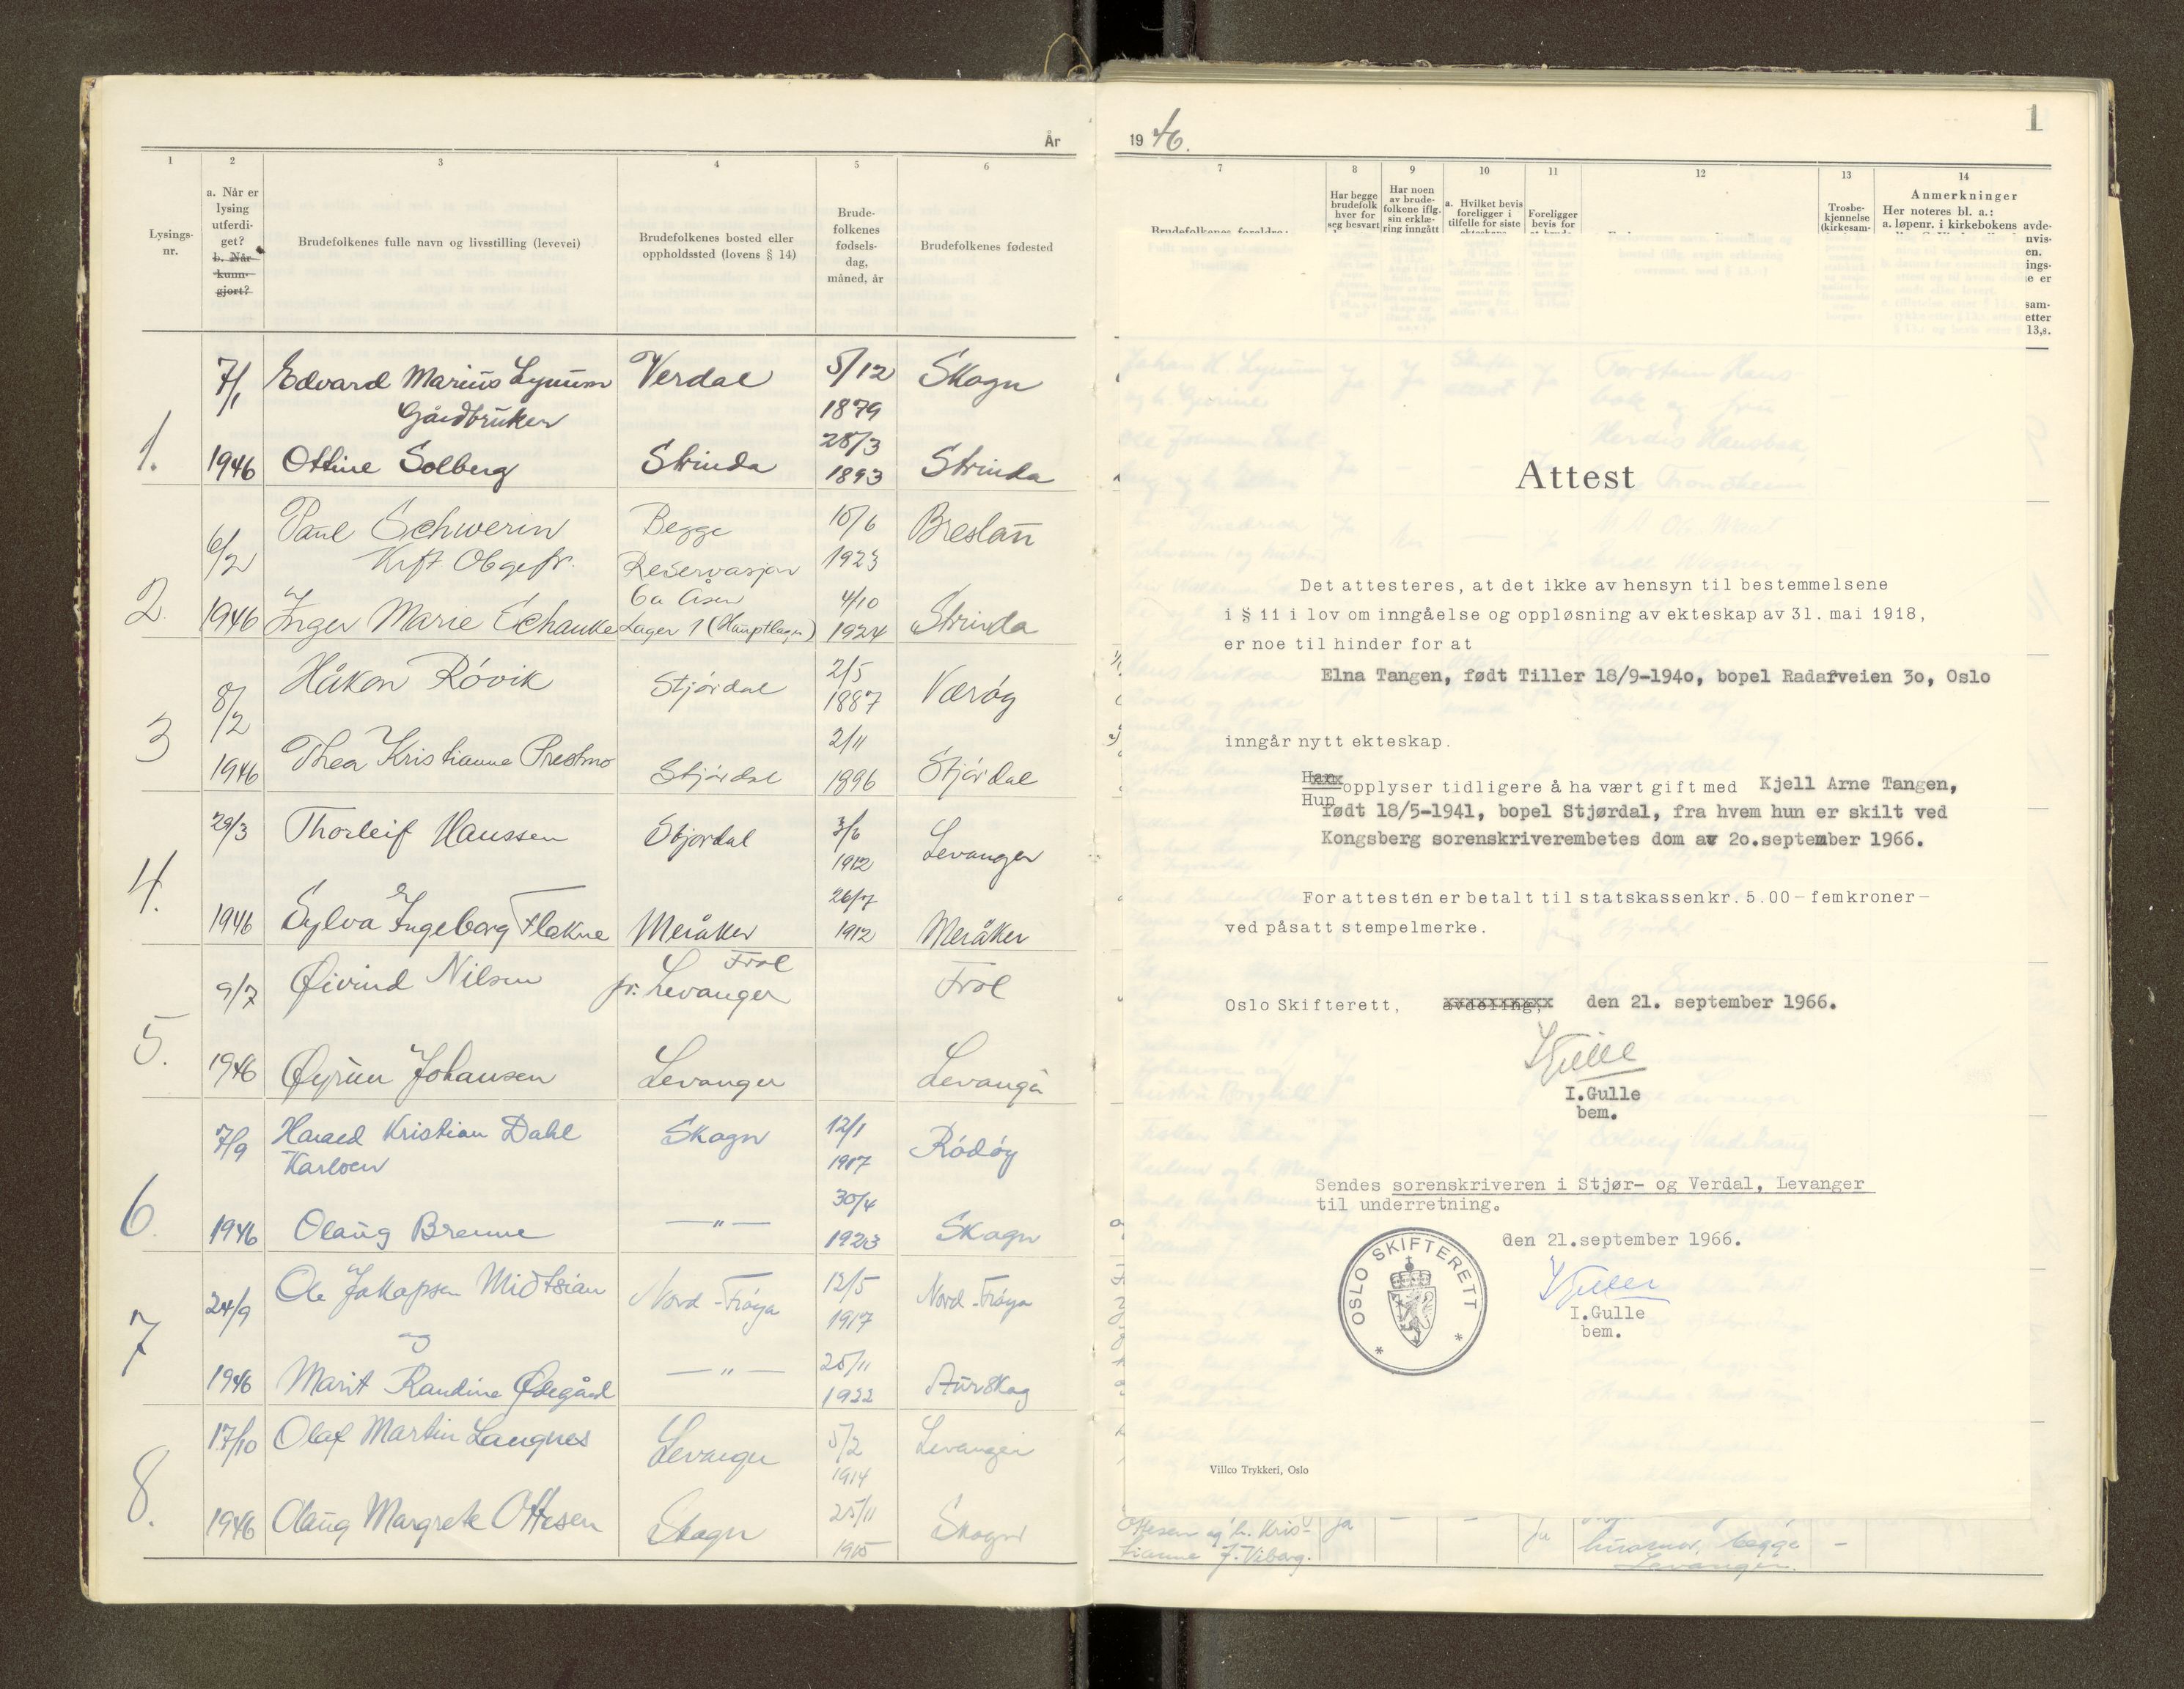 År
1
Lysings-
nr.
2
a. Når er
lysing
utferdi-
get?
b. Når
kunn-
gjort?
3
Brudefolkenes fulle navn og livsstilling (levevei)
4
Brudefolkenes bosted eller
oppholdssted (lovens § 14)
5
Brude-
folkenes
fødsels-
dag,
måned, år
6
Brudefolkenes fødested
1.
7/1
1946
Edvard Marius Lynum
Gårdbruker
Verdal
5/12
1879
Skogn
Ottine Solberg
Strinda
28/3
1893
Strinda
2
6/2
1946
Paul Schwerin
Krft Obgefr.
Begge
Reservasjon
6a Åsen
Lager 1 (Hauptlager)
10/6
1923
Breslau
Inger Marie Schanke
4/10
1924
Strinda
3
8/2
1946
Håkon Róvik
Stjórdal
2/5
1887
Værøy
Thea Kristianne Prestmo
Stjórdal
2/11
1896
Stjórdal
4.
29/3
1946
Thorleif Hanssen
Stjórdal
3/6
1912
Levanger
Sylva Ingeborg Flakne
Meråker
26/7
1912
Meråker
5.
9/7
1946
Øivind Nilsen
Frol
pr. Levanger
Frol
Øyrun Johansen
Levanger
Levanger
6.
7/9
1946
Harald Kristian Dahl
Karlsen
Skogn
12/1
1917
Ródóy
Olaug Brenne
— " —
30/4
1923
Skogn
7
24/9
1946
Ole Jakopsen Midtsian
Nord-Fróya
12/5
1917
Nord-Fróya
og
Marit Randine Ødegård
— " —
25/11
1922
Aurskog
8.
17/10
1946
Olaf Martin Langnes
Levanger
5/2
1914
Levanger
Olaug Margrete Ottesen
Skogn
25/11
1915
Skogn
1
19 46.
7
8
Har begge
brudefolk
hver for
seg besvart
9
Har noen
av brude-
folkene iflg.
sin erklæ-
ring inngått
10
a. Hvilket bevis
foreligger i
tilfelle for siste
11
Foreligger
bevis for
12
13
Trosbe-
kjennelse
(kirkesam-
14
Anmerkninger
Her noteres bl. a.:
a. løpenr. i kirkebokens avde-
nvis-
en.
ings-
e er
sam-
etter
13,s.
Attest
Det attesteres, at det ikke av hensyn til bestemmelsene
i § 11 i lov om inngåelse og oppløsning av ekteskap av 31. mai 1918,
er noe til hinder for at
Elna Tangen, født Tiller 18/9-1940, bopel Radarveien 30, Oslo
inngår nytt ekteskap.
Han
Hun opplyser tidligere å ha vært gift med Kjell Arne Tangen,
født 18/5-1941, bopel Stjørdal, fra hvem hun er skilt ved
Kongsberg sorenskriverembetes dom av 20.september 1966.
For attesten er betalt til statskassen kr. 5.00 – femkroner –
ved påsatt stempelmerke.
Oslo Skifterett, avdeling, den 21. september 1966.
I Gulle
I.Gulle
bem.
Sendes sorenskriveren i Stjør- og Verdal, Levanger
til underretning.
den 21.september 1966.
OSLO SKIFTERETT
I Gulle
I.Gulle
bem.
Villco Trykkeri, Oslo
Ottesen og h. Kris-
tianne f. Viberg.
ja
—
—
ja
begge
Levanger.
—